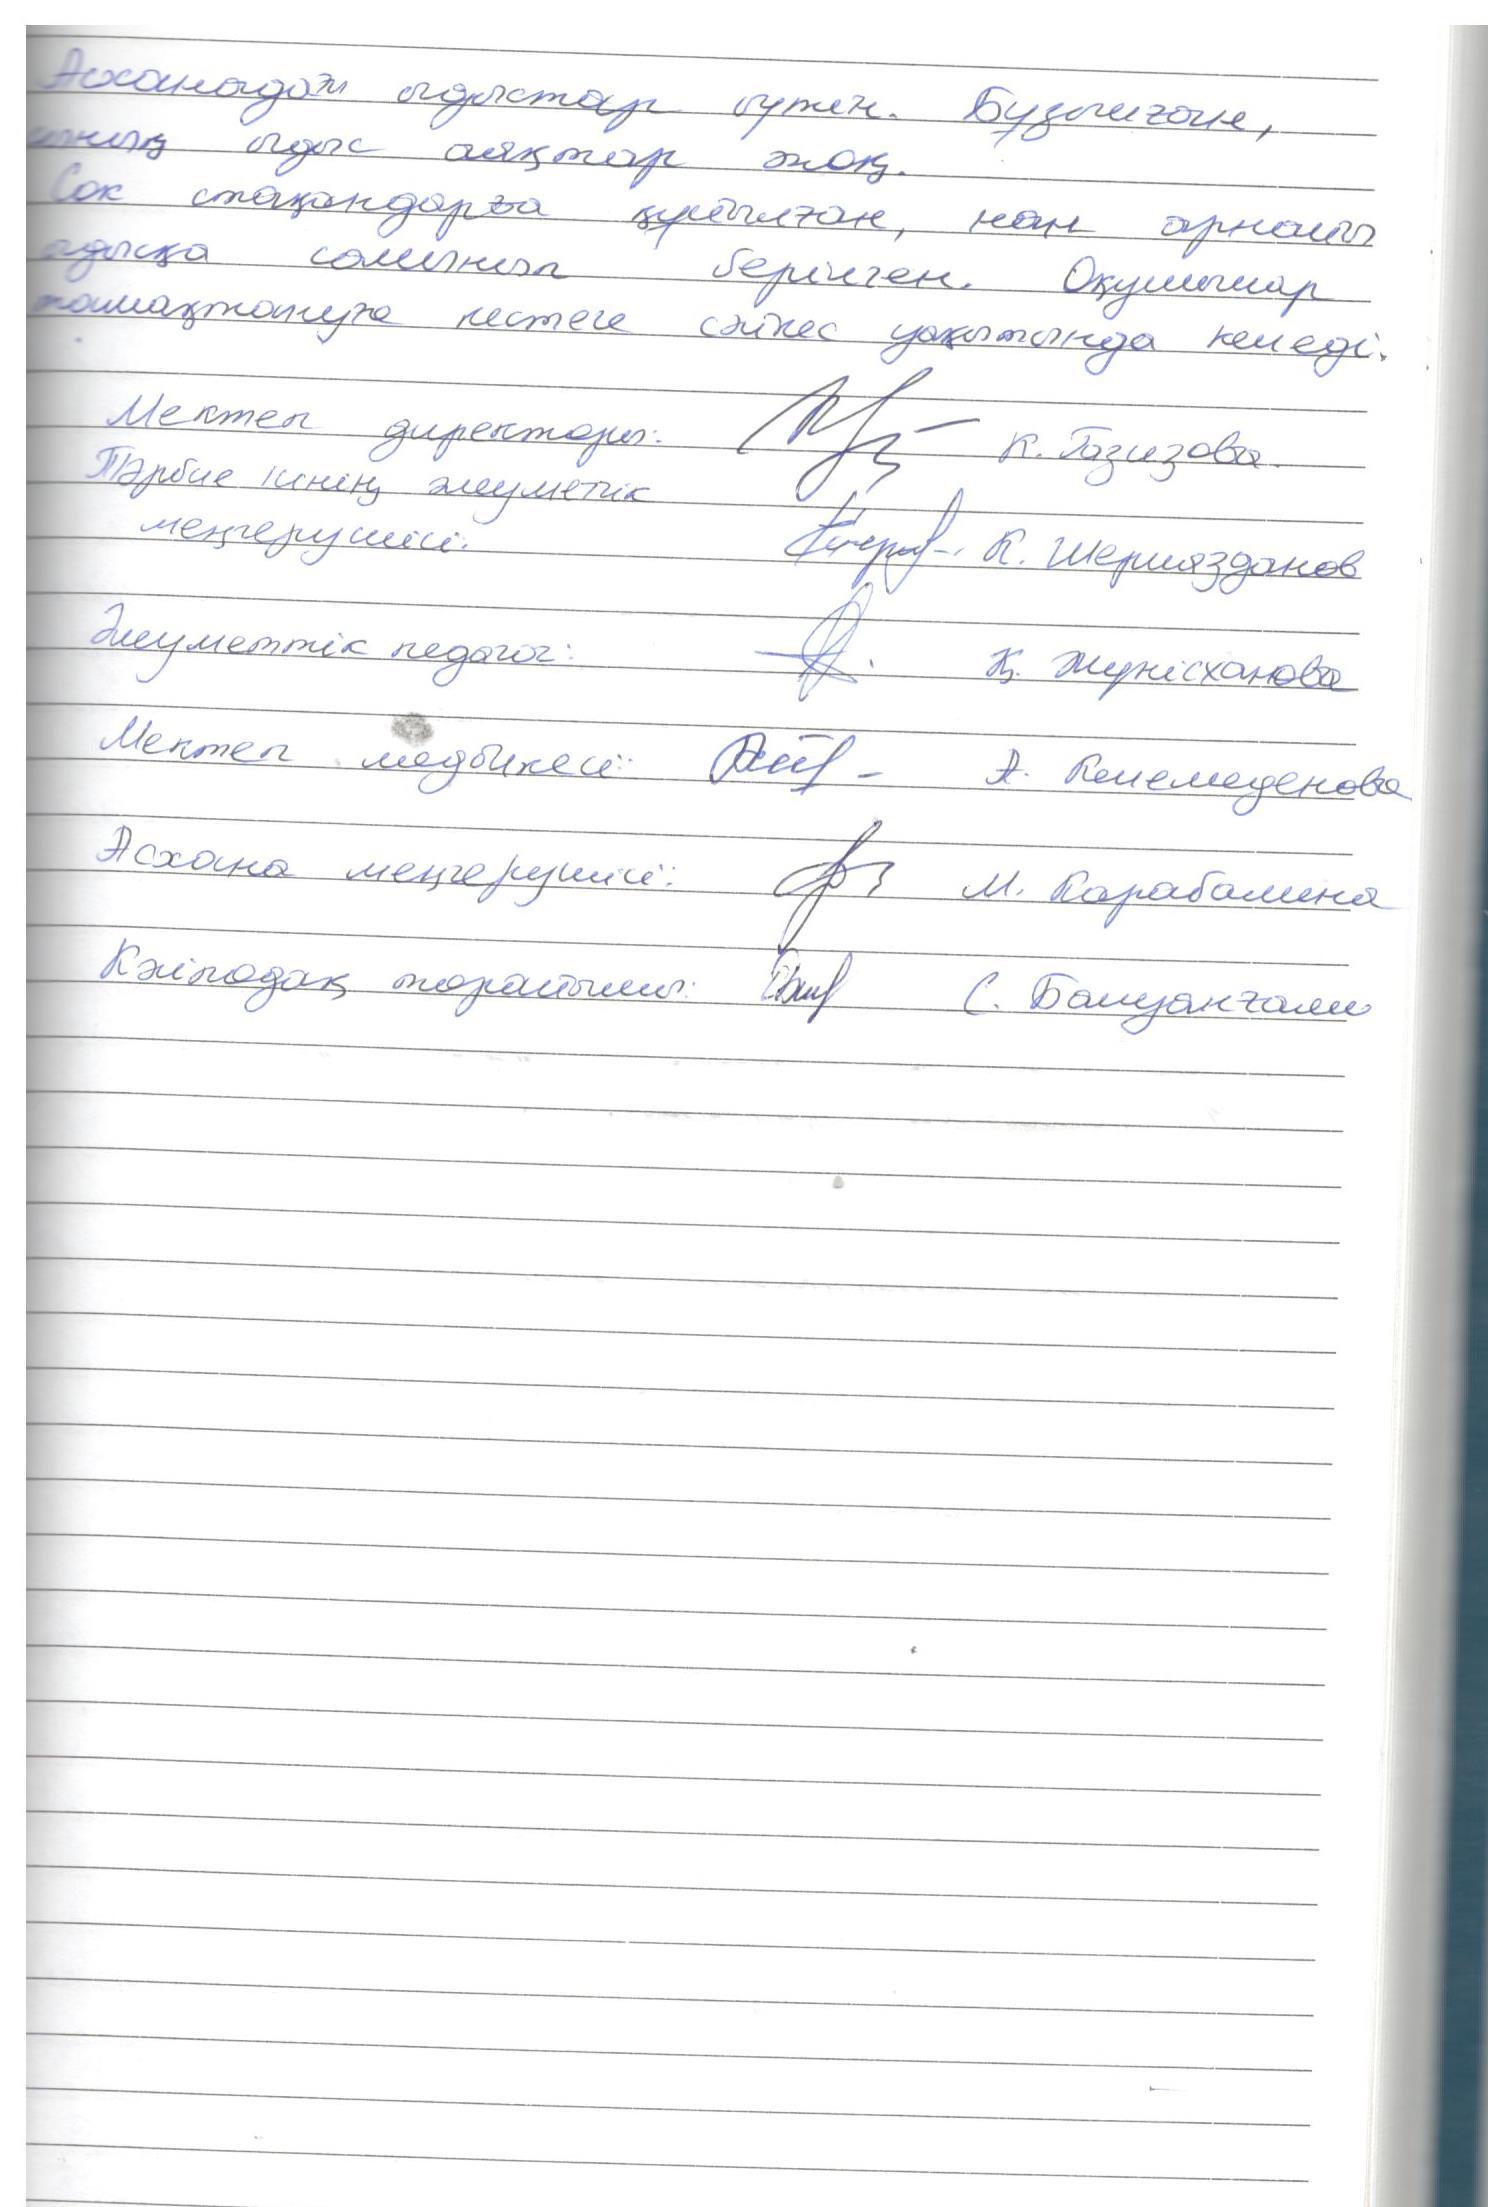 Асханадағы ыдыстар бүтін. Бұзылған,
сынық ыдыс аяқтар жоқ.
Сок стақандарға құйылған, нан арнайы
ыдысқа салынып берілген. Оқушылар
тамақтануға кестеге сәйкес уақытында келеді.
Мектеп директоры: К. Газизова.
Тәрбие ісінің әлеуметтік
меңгерушісі: К. Шериязданов
Әлеуметтік педагог: Қ. Жүнісханова
Мектеп медбикесі: А. Келемеденова
Асхана меңгерушісі: М. Карабалина
Кәсіподақ төрайымы: С.